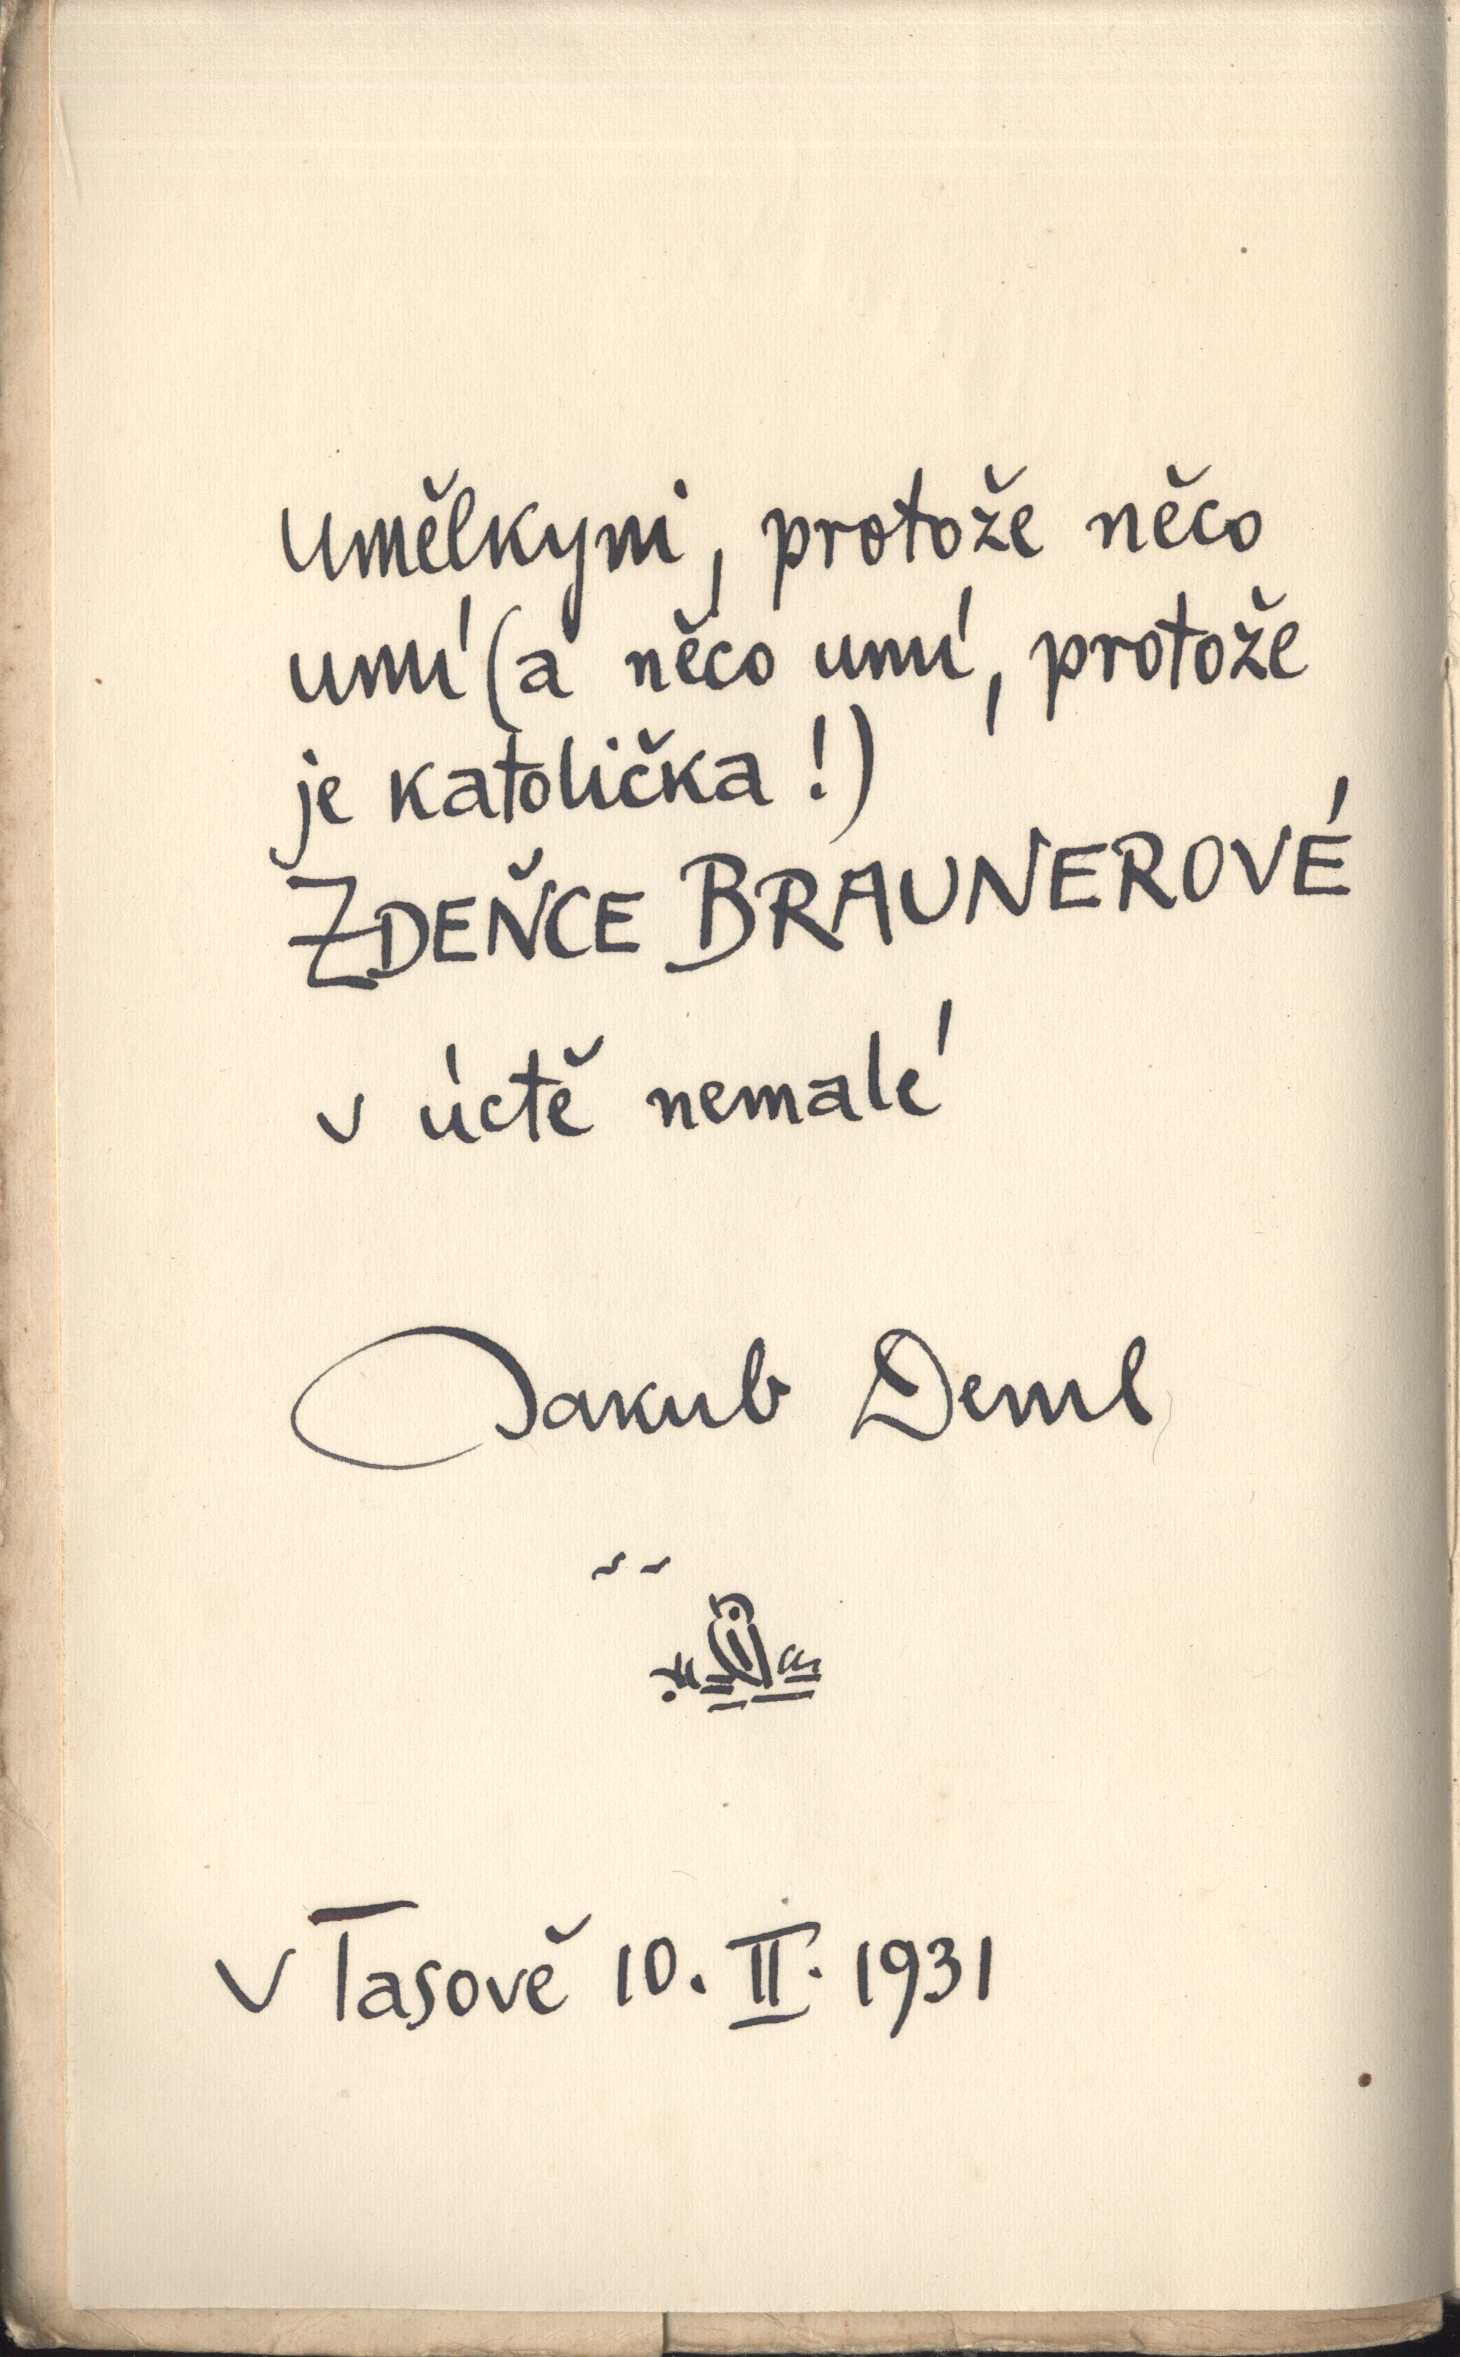 Umělkyni, protože něco
umí (a něco umí, protože
je katolička!)
ZDEŇCE BRAUNEROVÉ
v úctě nemalé
Jakub Deml
v Tasově 10. II. 1931